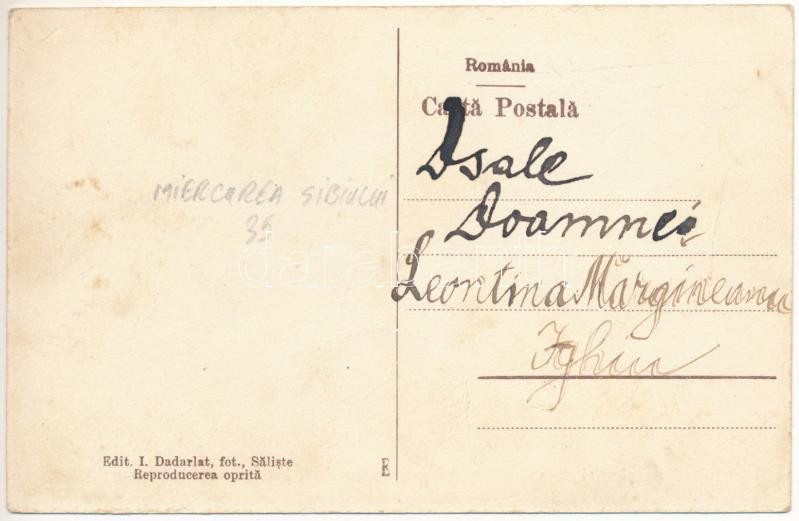 România
Cartă Postală
Dsale
Doamnei
Leontina Mărgineanu
Ighiu
MIERCUREA SIBIULUI
35
darabanth
Edit. I. Dadarlat, fot., Săliște
Reproducerea oprită
E